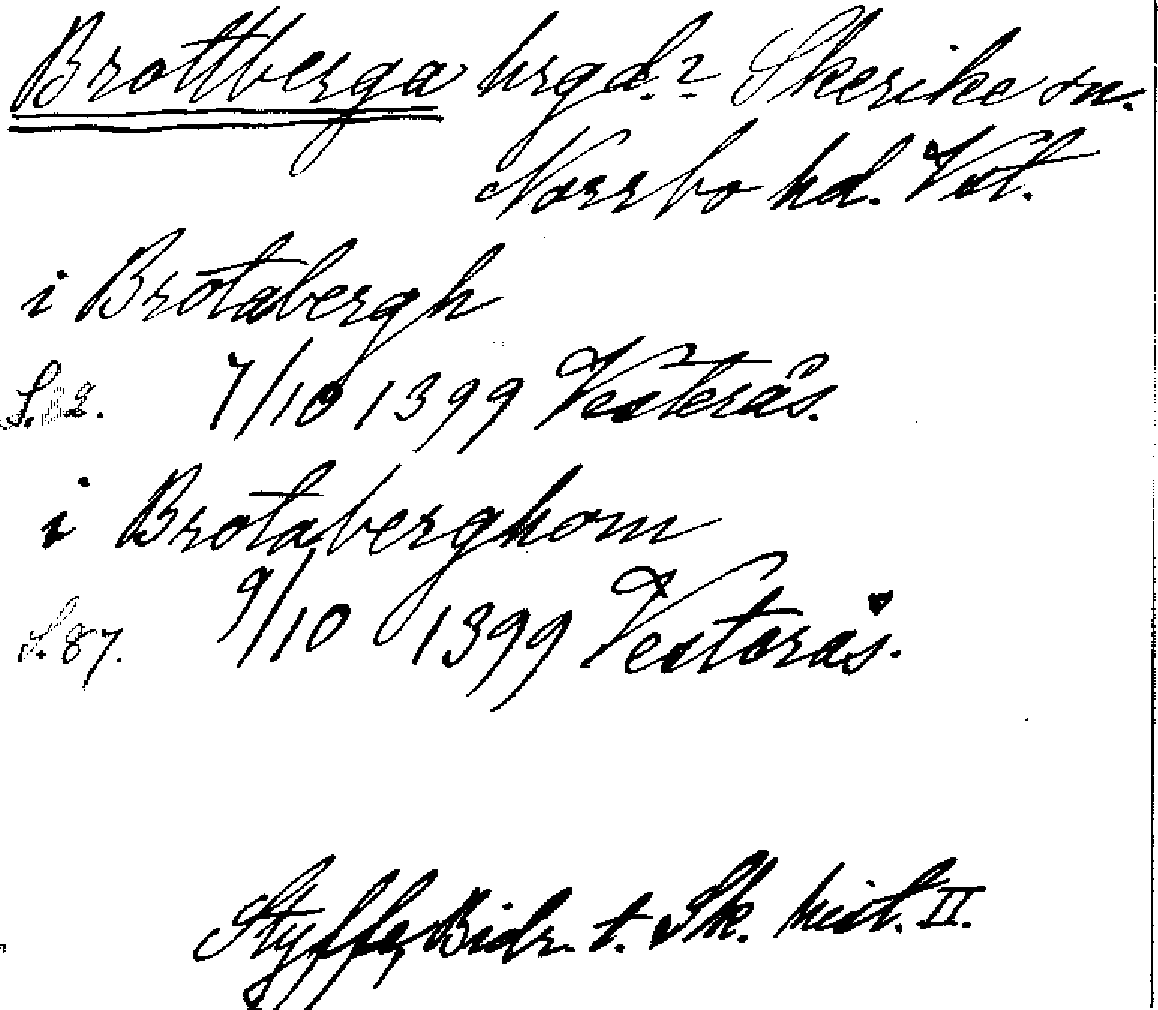 Brottberga hrgd.? Skerike sn.
Norrbo hd. Vst.
i Brotabergh
S. 82. 7/10 1399 Vesterås.
i Brotaberghom
S. 87. 9/10 1399 Vesterås.
Styffe, Bidr. t. Sk. hist. II.